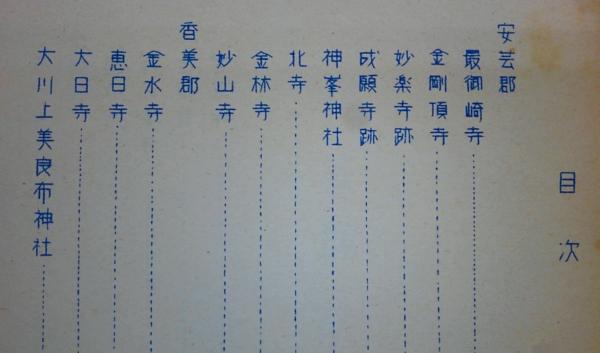 目次
安芸郡
最御崎寺
金剛頂寺
妙楽寺跡
成願寺跡
神峯神社
北寺
金林寺
妙山寺
香美郡
金水寺
恵日寺
大日寺
大川上美良布神社